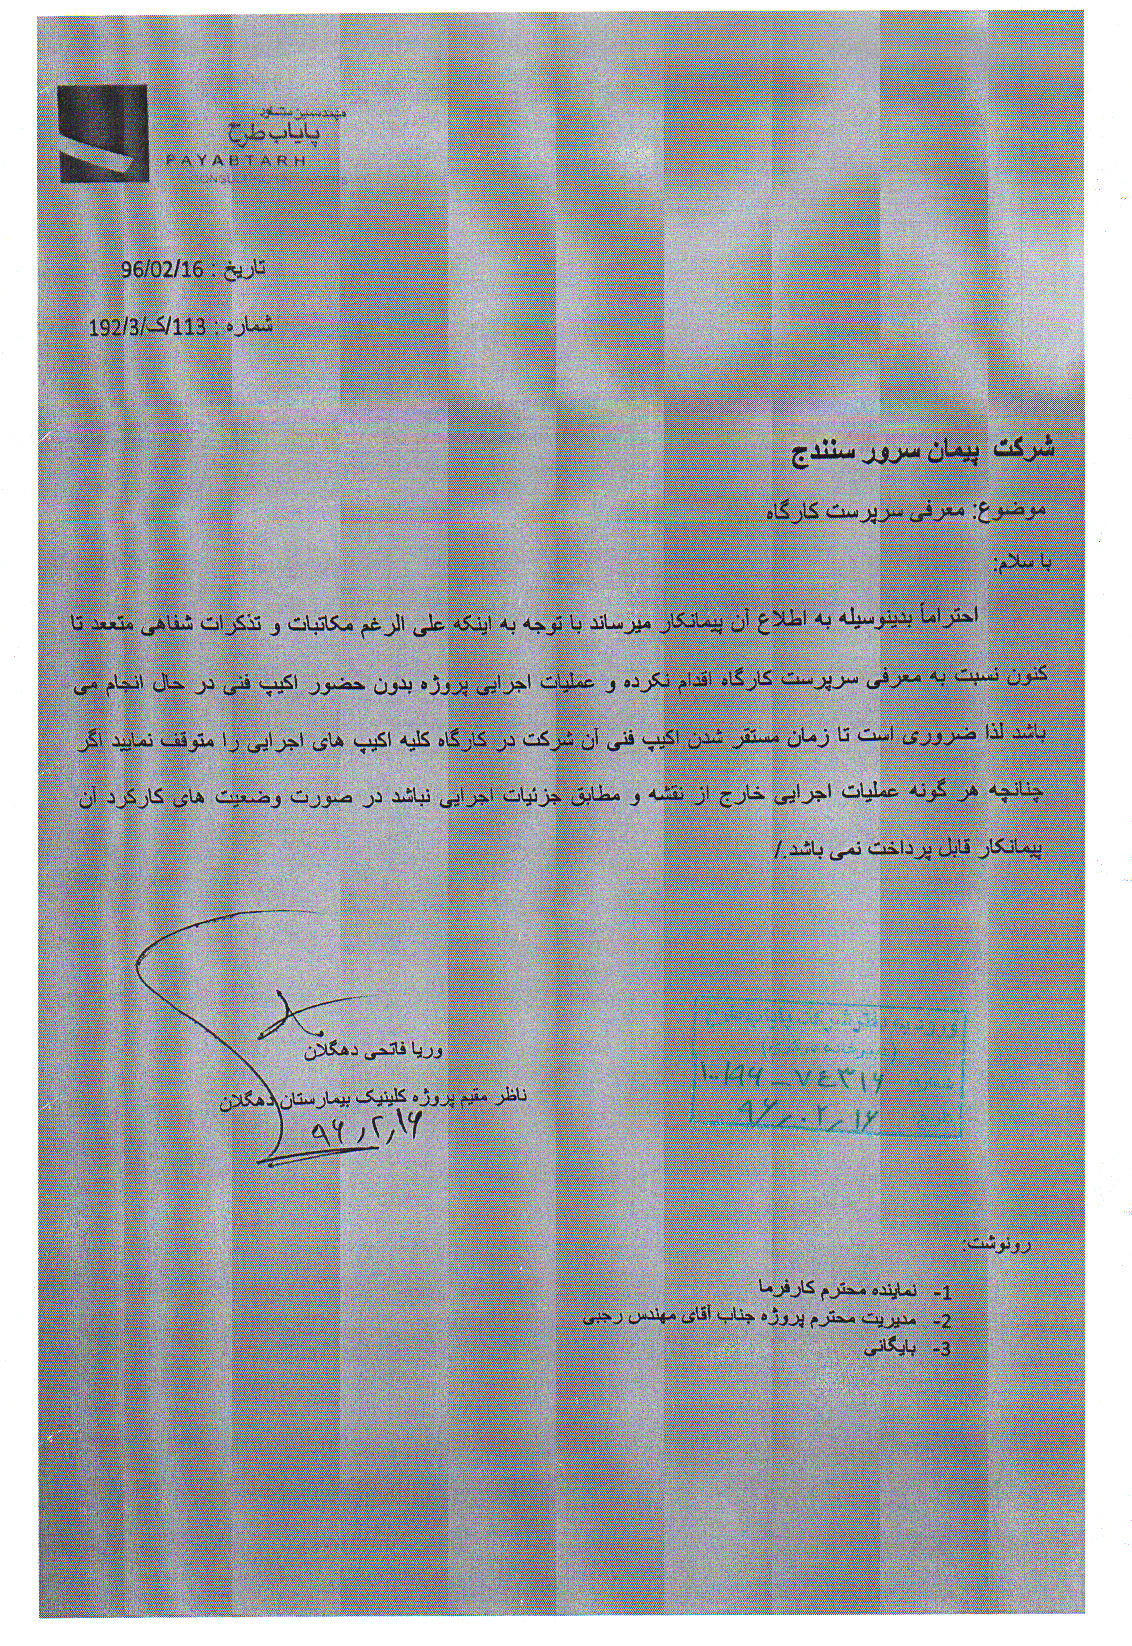 مهندسین مشاور
پایاب طرح
PAYABTARH
تاریخ : 96/02/16
شماره : 113/ک/192/3
شرکت پیمان سرور سنندج
موضوع: معرفی سرپرست کارگاه
با سلام:
احتراماً بدینوسیله به اطلاع آن پیمانکار میرساند با توجه به اینکه علی الرغم مکاتبات و تذکرات شفاهی متععد تا
کنون نسبت به معرفی سرپرست کارگاه اقدام نکرده و عملیات اجرایی پروژه بدون حضور اکیپ فنی در حال انجام می
باشد لذا ضروری است تا زمان مستقر شدن اکیپ فنی آن شرکت در کارگاه کلیه اکیپ های اجرایی را متوقف نمایید اگر
چنانچه هر گونه عملیات اجرایی خارج از نقشه و مطابق جزئیات اجرایی نباشد در صورت وضعیت های کارکرد آن
پیمانکار قابل پرداخت نمی باشد./
وریا فاتحی دهگلان
ناظر مقیم پروژه کلینیک بیمارستان دهگلان
۹۶٫۲٫۱۶
۹۶٫۰۲٫۱۶
رونوشت:
1- نماینده محترم کارفرما
2- مدیریت محترم پروژه جناب آقای مهندس رجبی
3- بایگانی